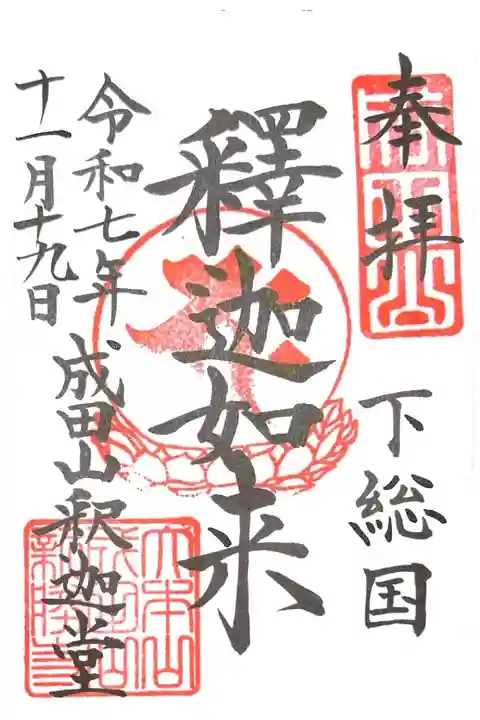 奉拝
下総国
釋迦如来
令和七年
十一月十九日
成田山釈迦堂
大本山
成田山
新勝寺